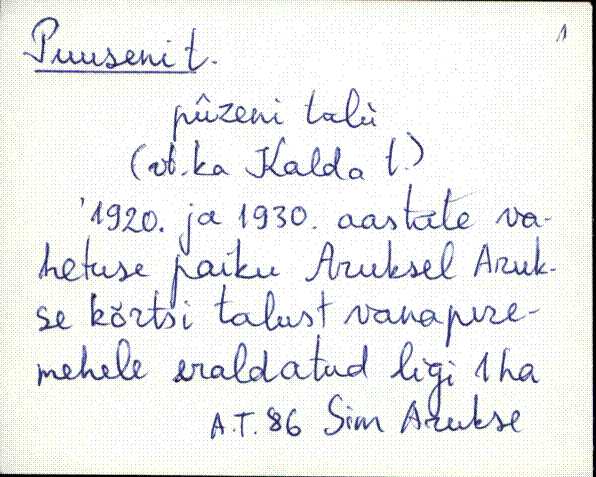 1
Puuseni t.
pûzeni talù
(vt. ka Kalda t.)
'1920. ja 1930. aastate va-
hetuse paiku Aruksel Aruk-
se kõrtsi talust vanapere-
mehele eraldatud ligi 1 ha
A.T. 86 Sim Arukse